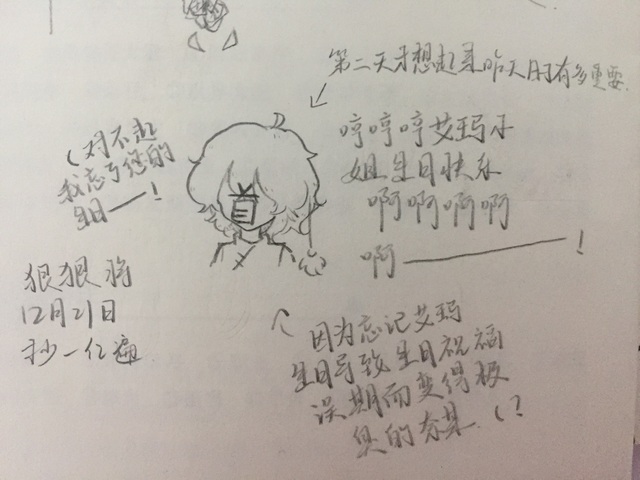 第二天才想起来昨天日子有多重要
哼哼哼艾玛小
姐生日快乐
啊啊啊啊
啊——————！
（对不起
我忘了您的
生日——！
狠狠将
12月21日
抄一亿遍
因为忘记艾玛
生日导致生日祝福
误期而变得极
臭的夯某（？